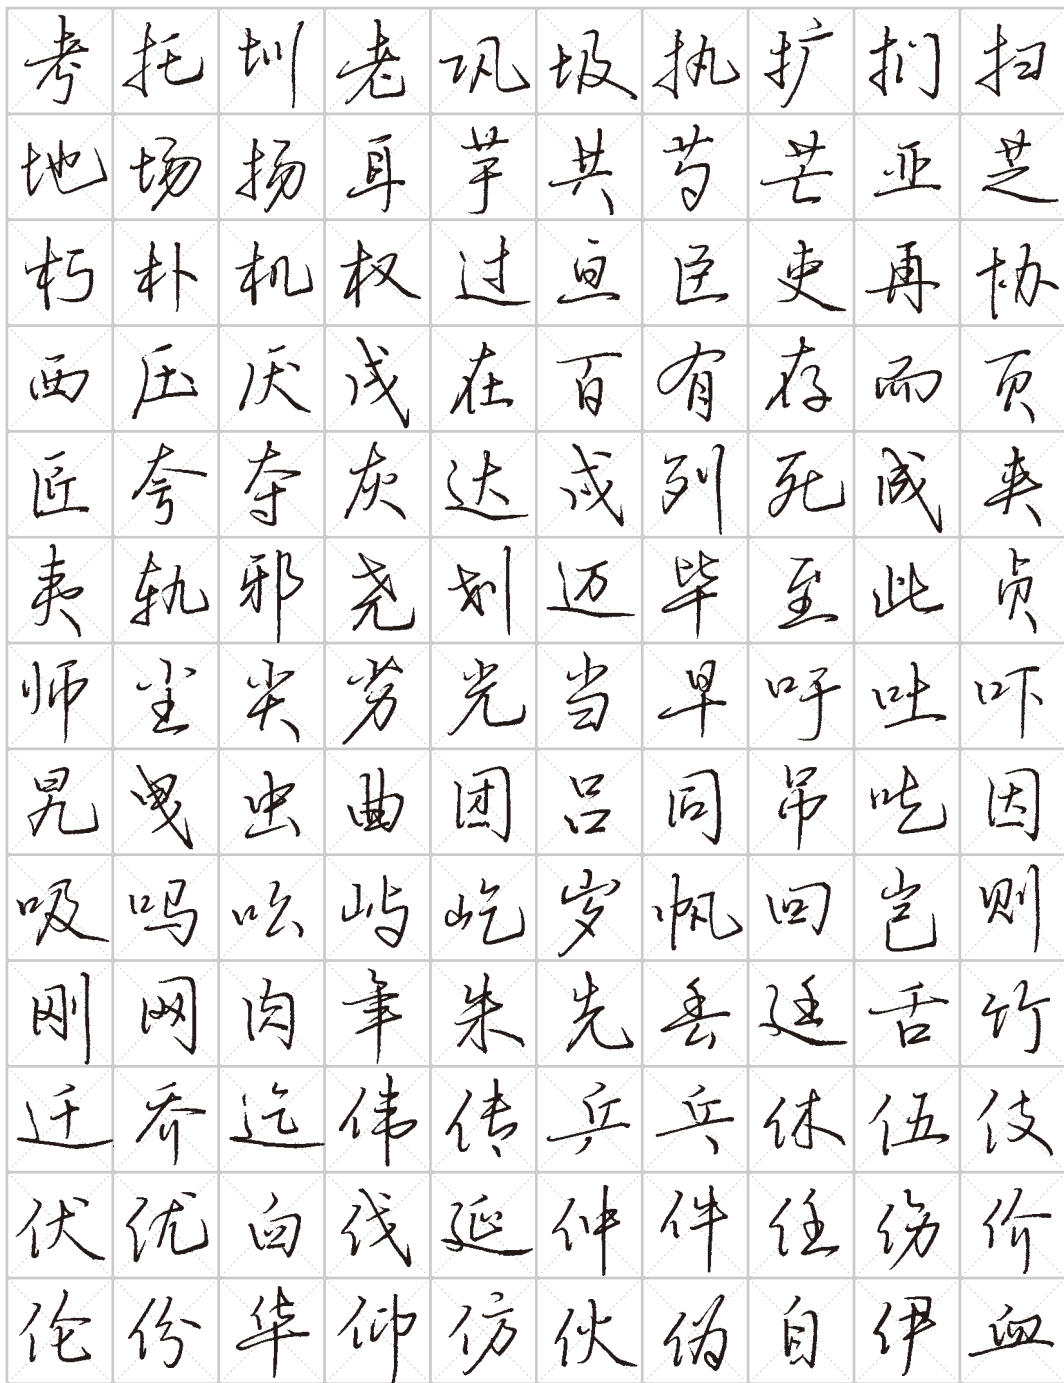 考托圳老巩圾执扩扪扫
地场扬耳芋共芍芒亚芝
朽朴机权过亘臣吏再协
西压厌戌在百有存而页
匠夸夺灰达戍列死成夹
夷轨邪尧划迈毕至此贞
师尘尖劣光当早吁吐吓
旯曳虫曲团吕同吊吃因
吸吗吆屿屹岁帆回岂则
刚网肉年朱先丢廷舌竹
迁乔迄伟传乒乓休伍伎
伏优臼伐延仲件任伤价
伦份华仰仿伙伪自伊血